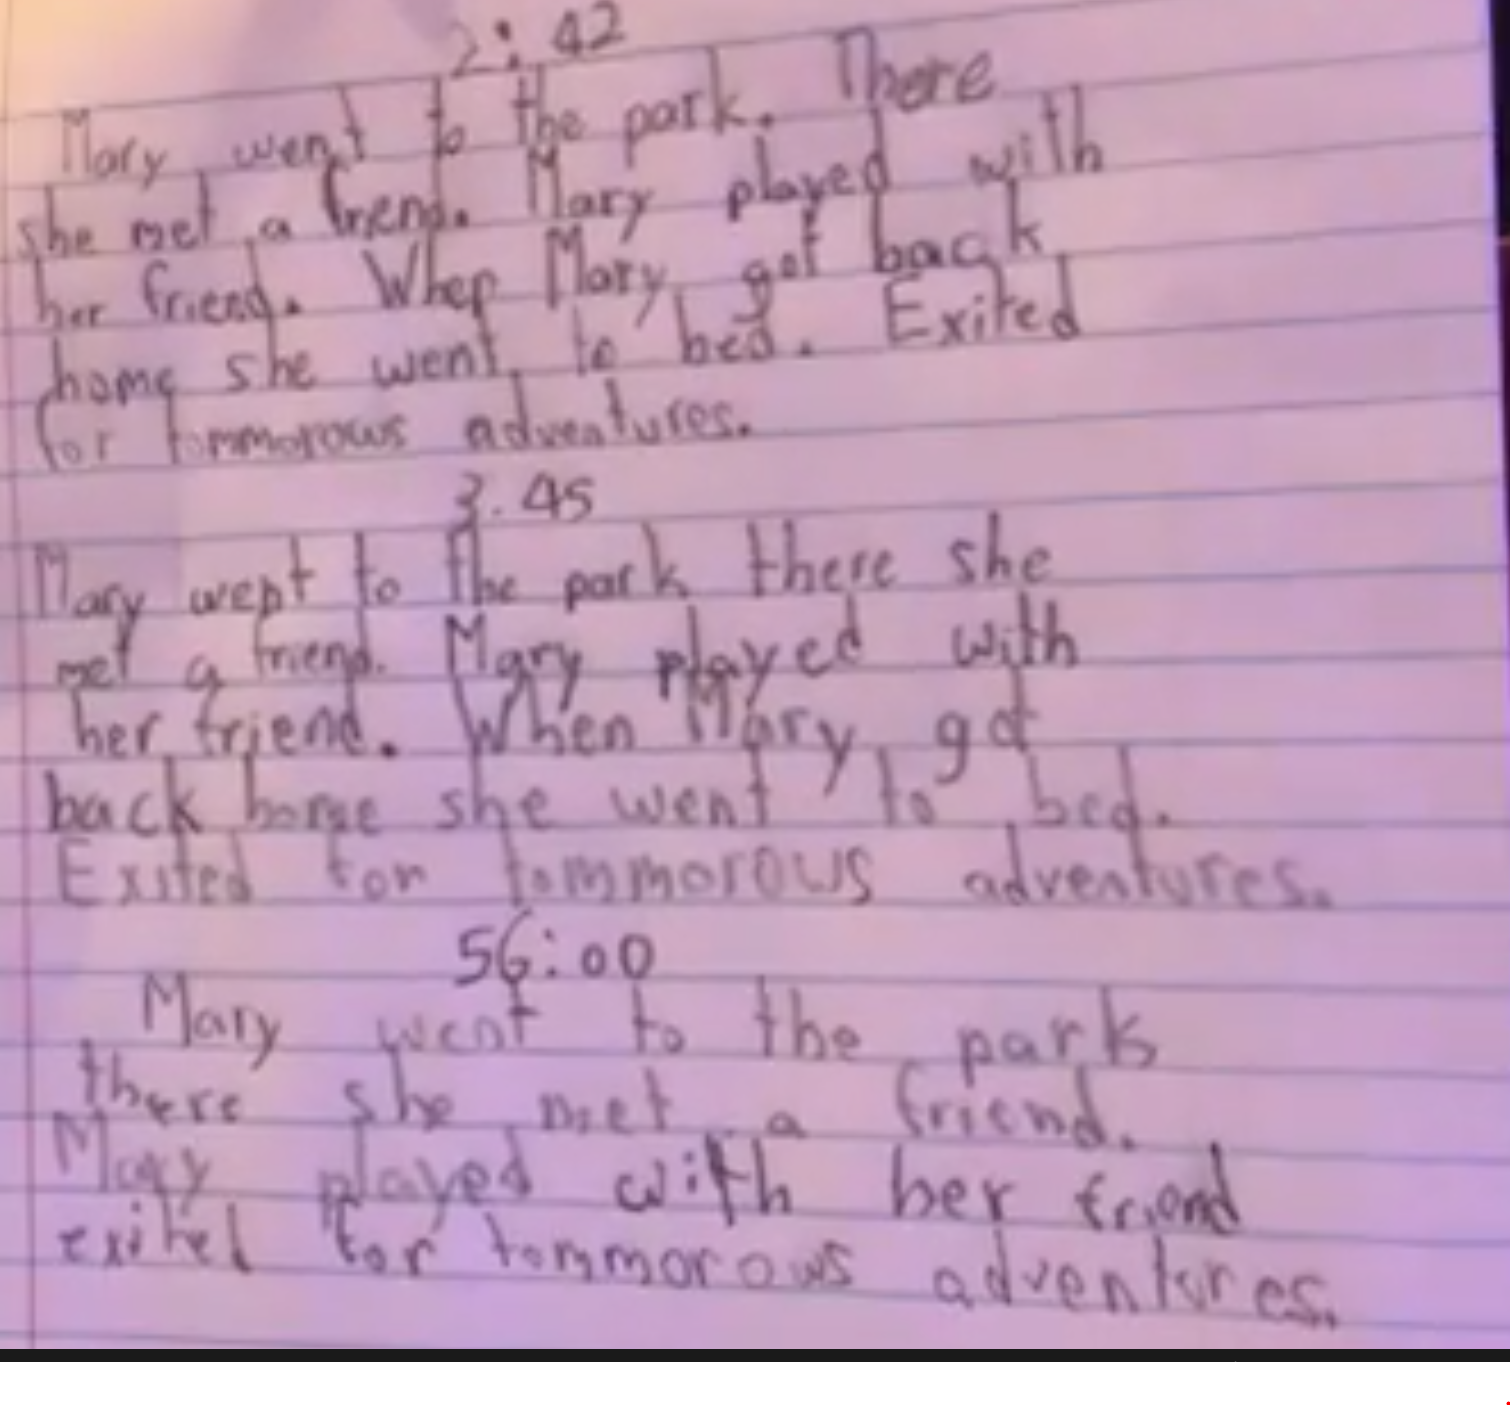 2:42
Mary went to the park. There
she met a friend. Mary played with
her friend. When Mary got back
home she went to bed. Exited
for tommorows adventures.
3.45
Mary went to the park there she
met a friend. Mary played with
her friend. When Mary got
back home she went to bed.
Exited for tommorows adventures.
56:00
Mary went to the park
there she met a friend.
Mary played with her friend
exited for tommorows adventures.